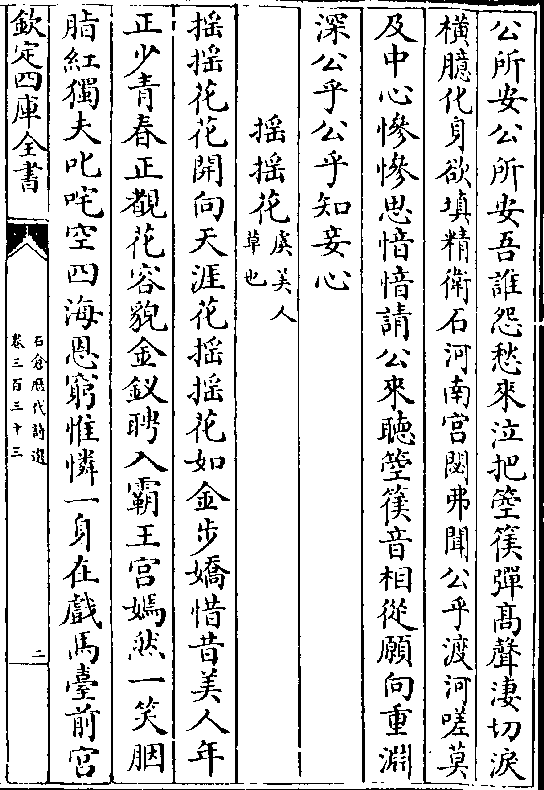 公所安公所安吾誰怨愁來泣把箜篌彈高聲淒切淚
橫臆化身欲填精衛石河南宮閟弗聞公乎渡河嗟莫
及中心慘慘思愔愔請公來聽箜篌音相從願向重淵
深公乎公乎知妾心
揺揺花虞美人草也
揺揺花花開向天涯花揺揺花如金步嬌惜昔美人年
正少青春正覩花容貌金釵聘入霸王宮嫣然一笑胭
脂紅獨夫叱咤空四海恩窮惟憐一身在戲馬臺前宮
欽定四庫全書
石倉歷代詩選
卷三百三十三
二